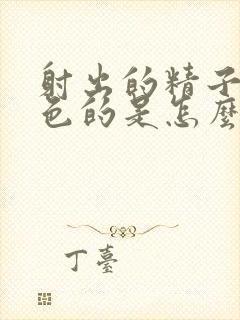 射出的精子
色的是怎麼
丁臺